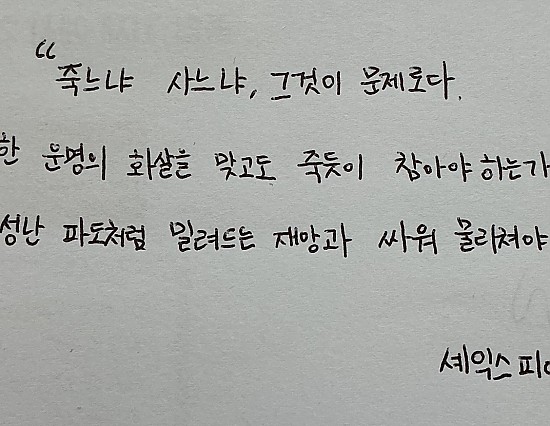 “죽느냐 사느냐, 그것이 문제로다.
한 운명의 화살을 맞고도 죽듯이 참아야 하는가
성난 파도처럼 밀려드는 재앙과 싸워 물리쳐야
셰익스피